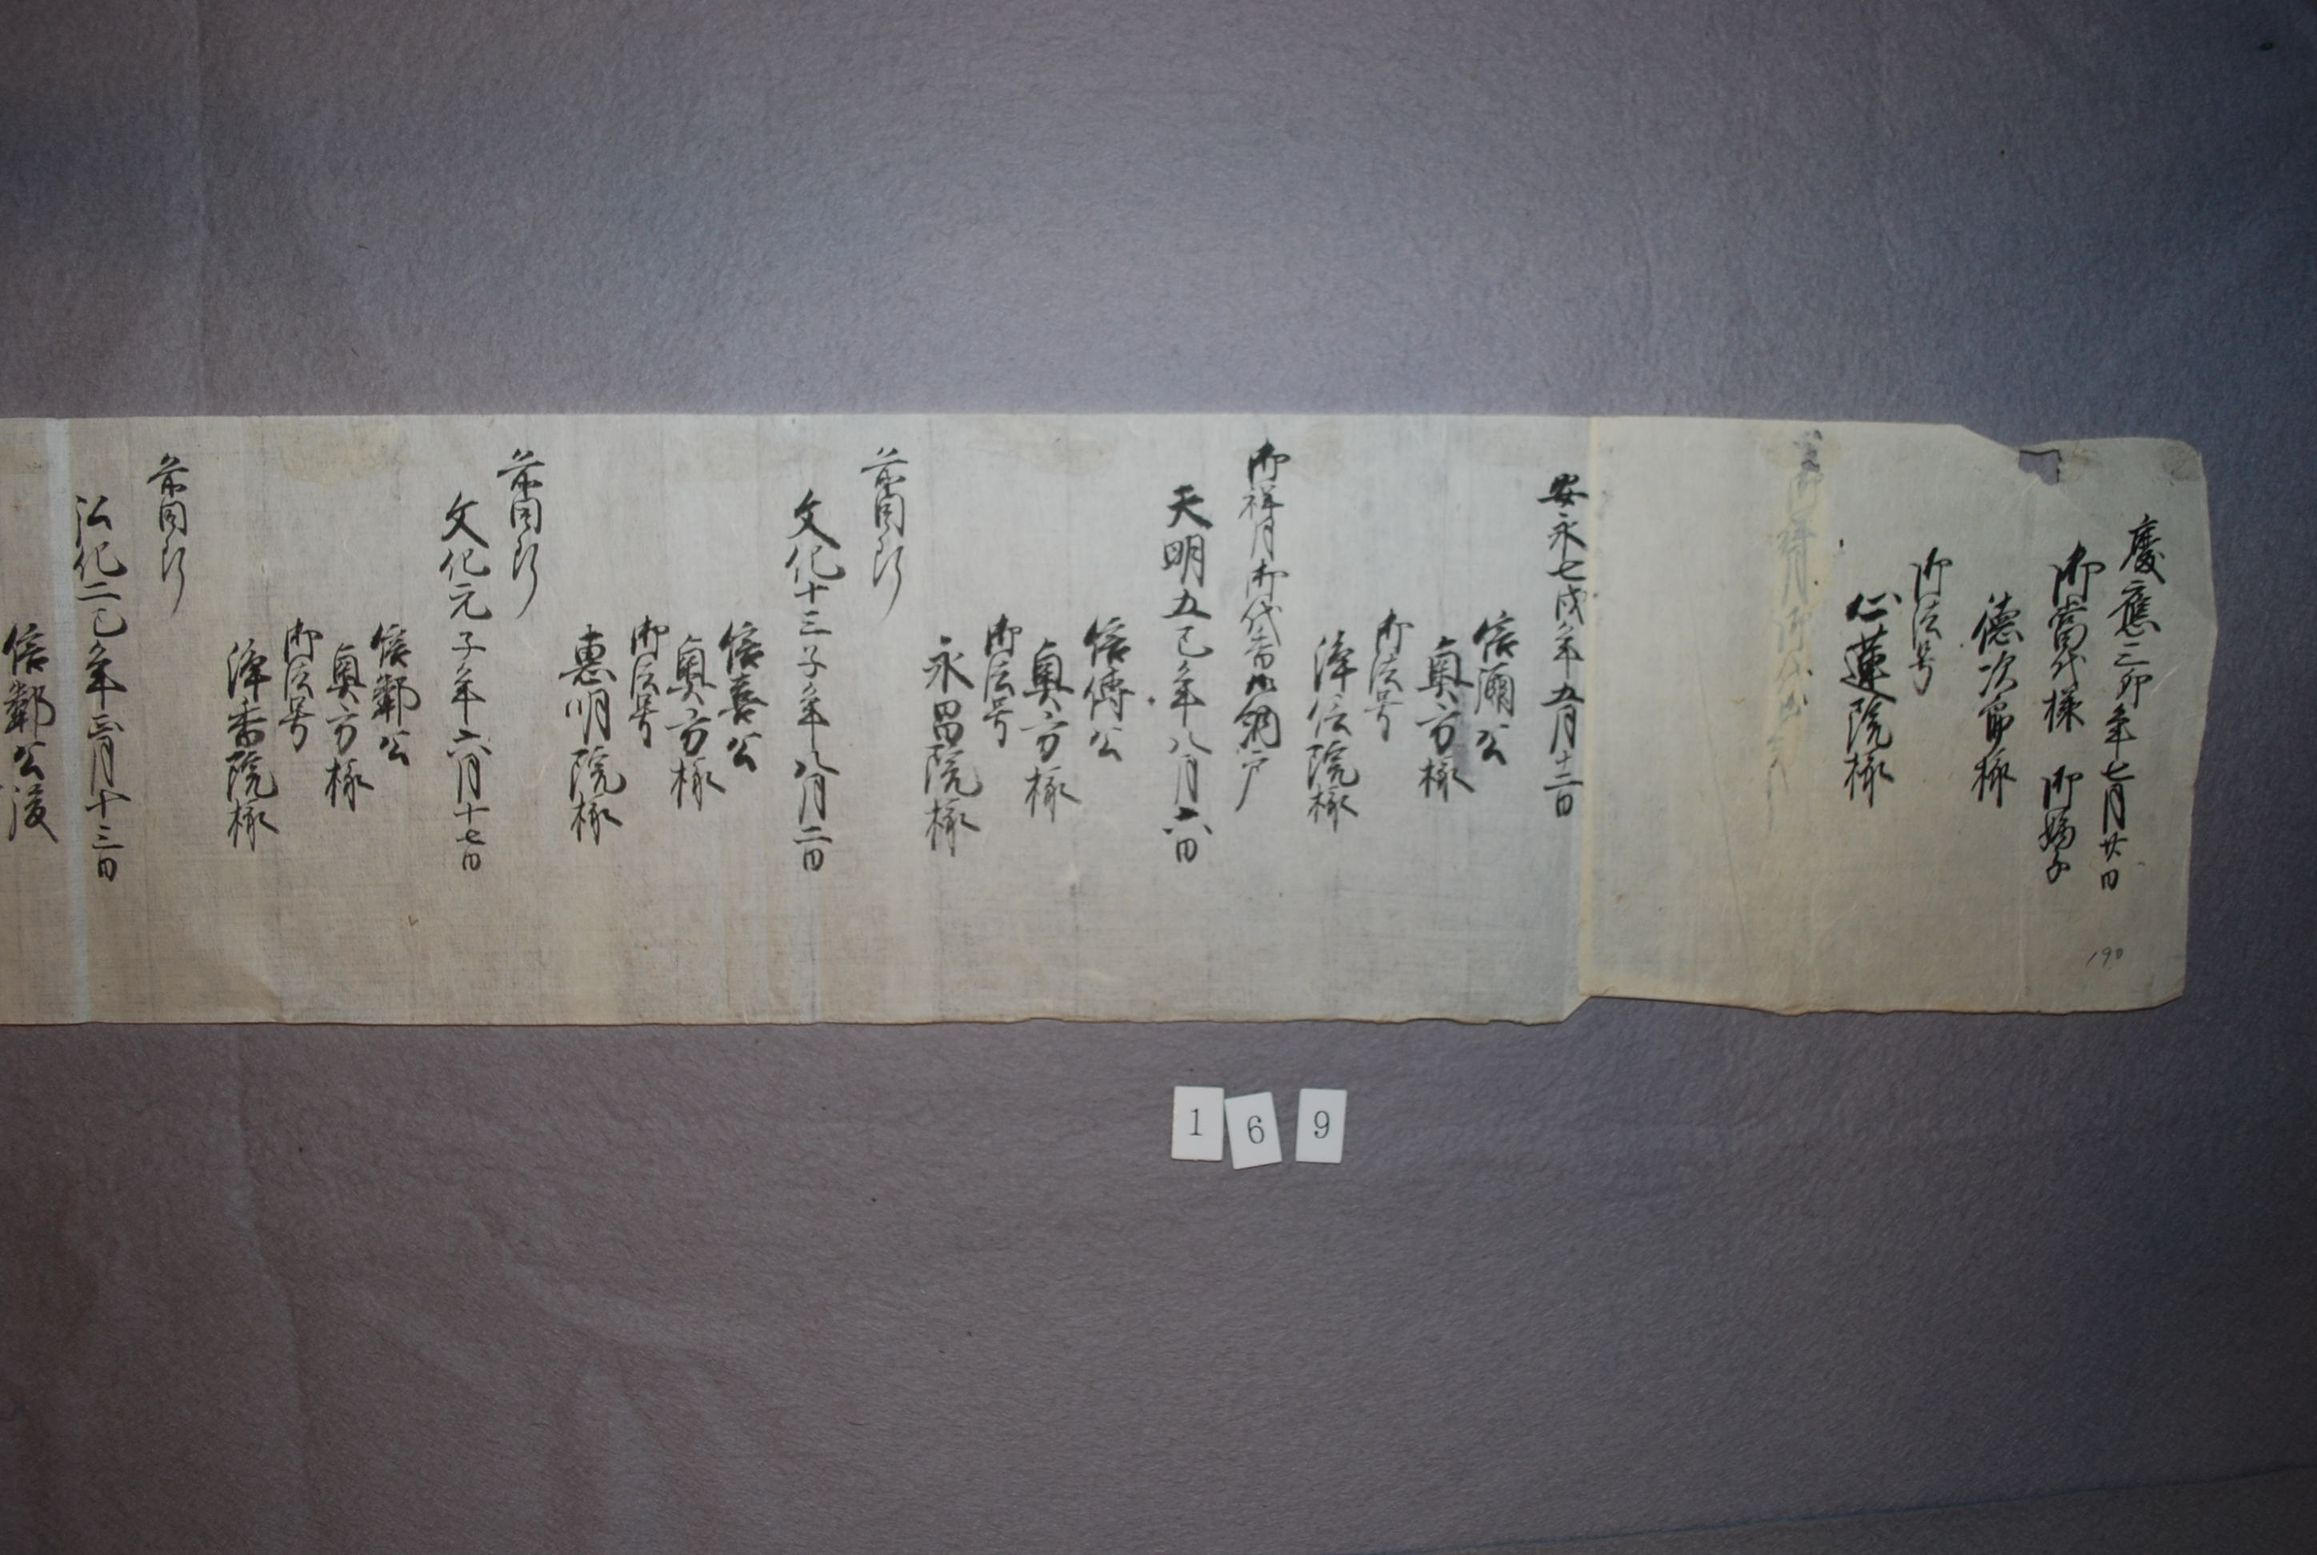 慶應三卯年七月廿日
御當代様 御嫡子
徳次郎様
御法号
心蓮院様
御祥月御代
安永七戌年五月十二日
信濔公
奥方様
御法号
浄信院様
御祥月御代香
天明五巳年八月六日
信傳公
奥方様
御法号
永昌院様
前同断
文化十三子年八月二日
信喜公
奥方様
御法号
惠明院様
前同断
文化元子年六月十七日
信鄰公
奥方様
御法号
浄香院様
前同断
弘化二巳年三月十三日
信鄰公後
190
1 6 9